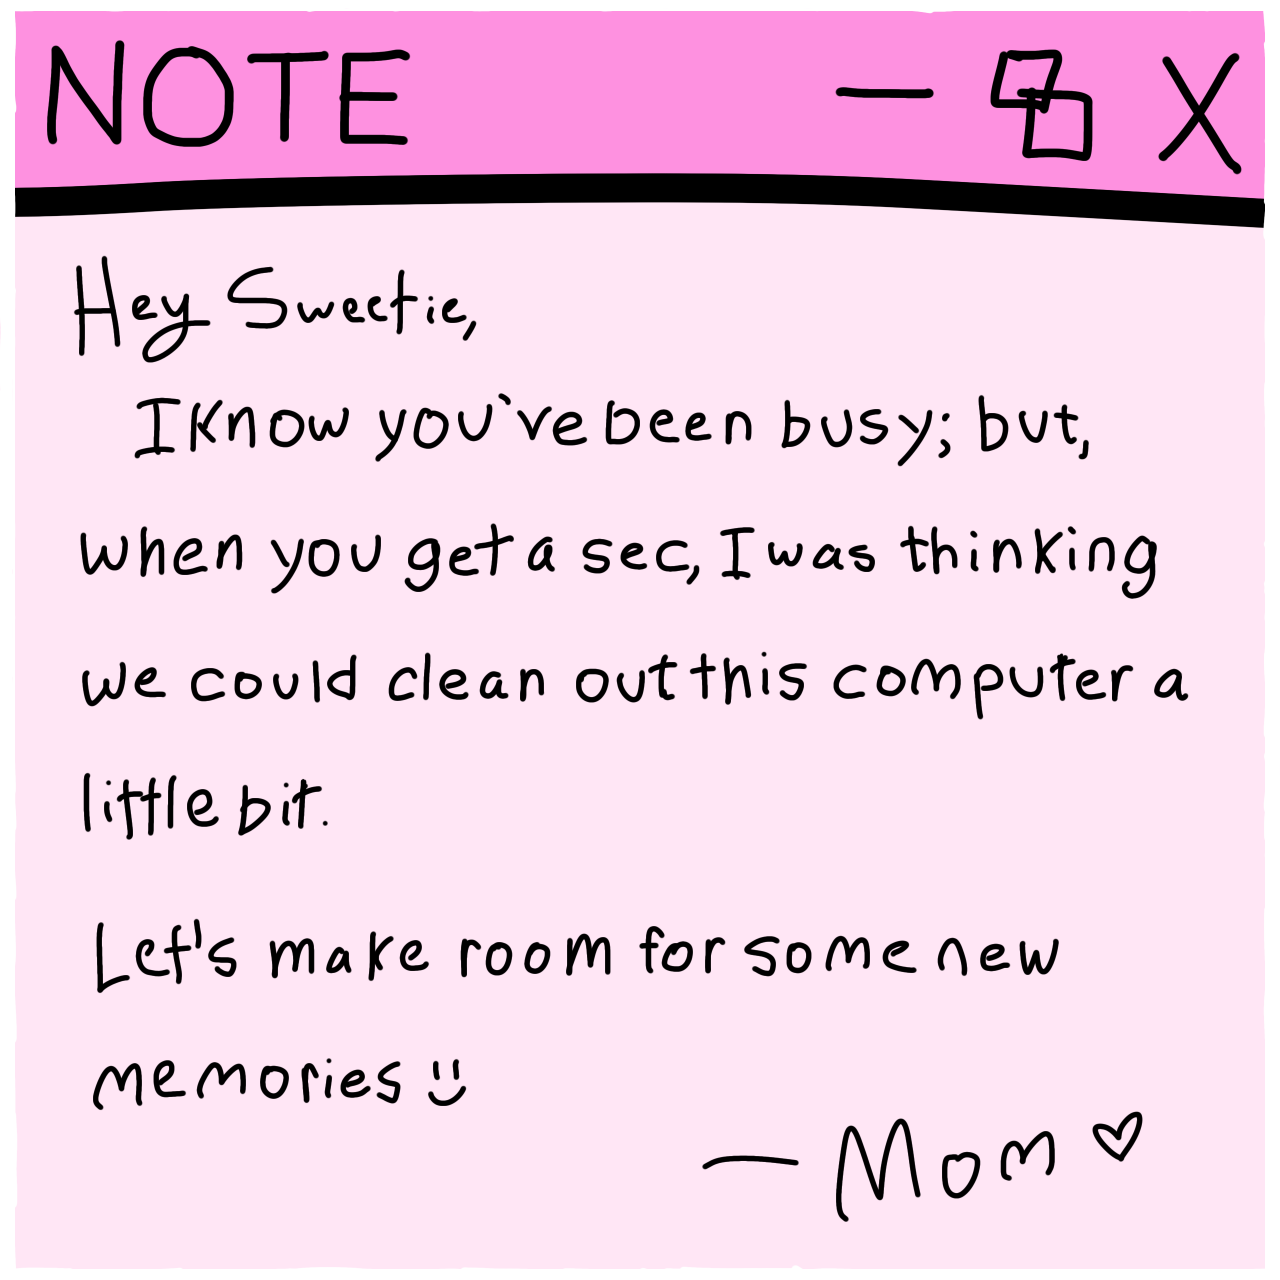 NOTE — X
Hey Sweetie,
I know you've been busy; but,
when you get a sec, I was thinking
we could clean out this computer a
little bit.
Let's make room for some new
memories :)
— Mom ♡